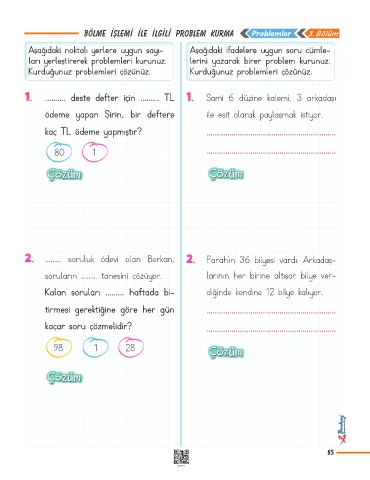 BÖLME İŞLEMİ İLE İLGİLİ PROBLEM KURMA
Problemler
3. Bölüm
Aşağıdaki noktalı yerlere uygun sayı-
ları yerleştirerek problemleri kurunuz.
Kurduğunuz problemleri çözünüz.
1. .......... deste defter için ......... TL
ödeme yapan Şirin, bir deftere
kaç TL ödeme yapmıştır?
80 1
Çözüm
2. ......... soruluk ödevi olan Berkan,
soruların ......... tanesini çözüyor.
Kalan soruları .......... haftada bi-
tirmesi gerektiğine göre her gün
kaçar soru çözmelidir?
98 1 28
Çözüm
Aşağıdaki ifadelere uygun soru cümle-
lerini yazarak birer problem kurunuz.
Kurduğunuz problemleri çözünüz.
1. Sami 6 düzine kalemi, 3 arkadaşı
ile eşit olarak paylaşmak istiyor.
Çözüm
2. Farah'ın 36 bilyesi vardı. Arkadaş-
larının her birine altışar bilye ver-
diğinde kendine 12 bilye kalıyor.
Çözüm
85